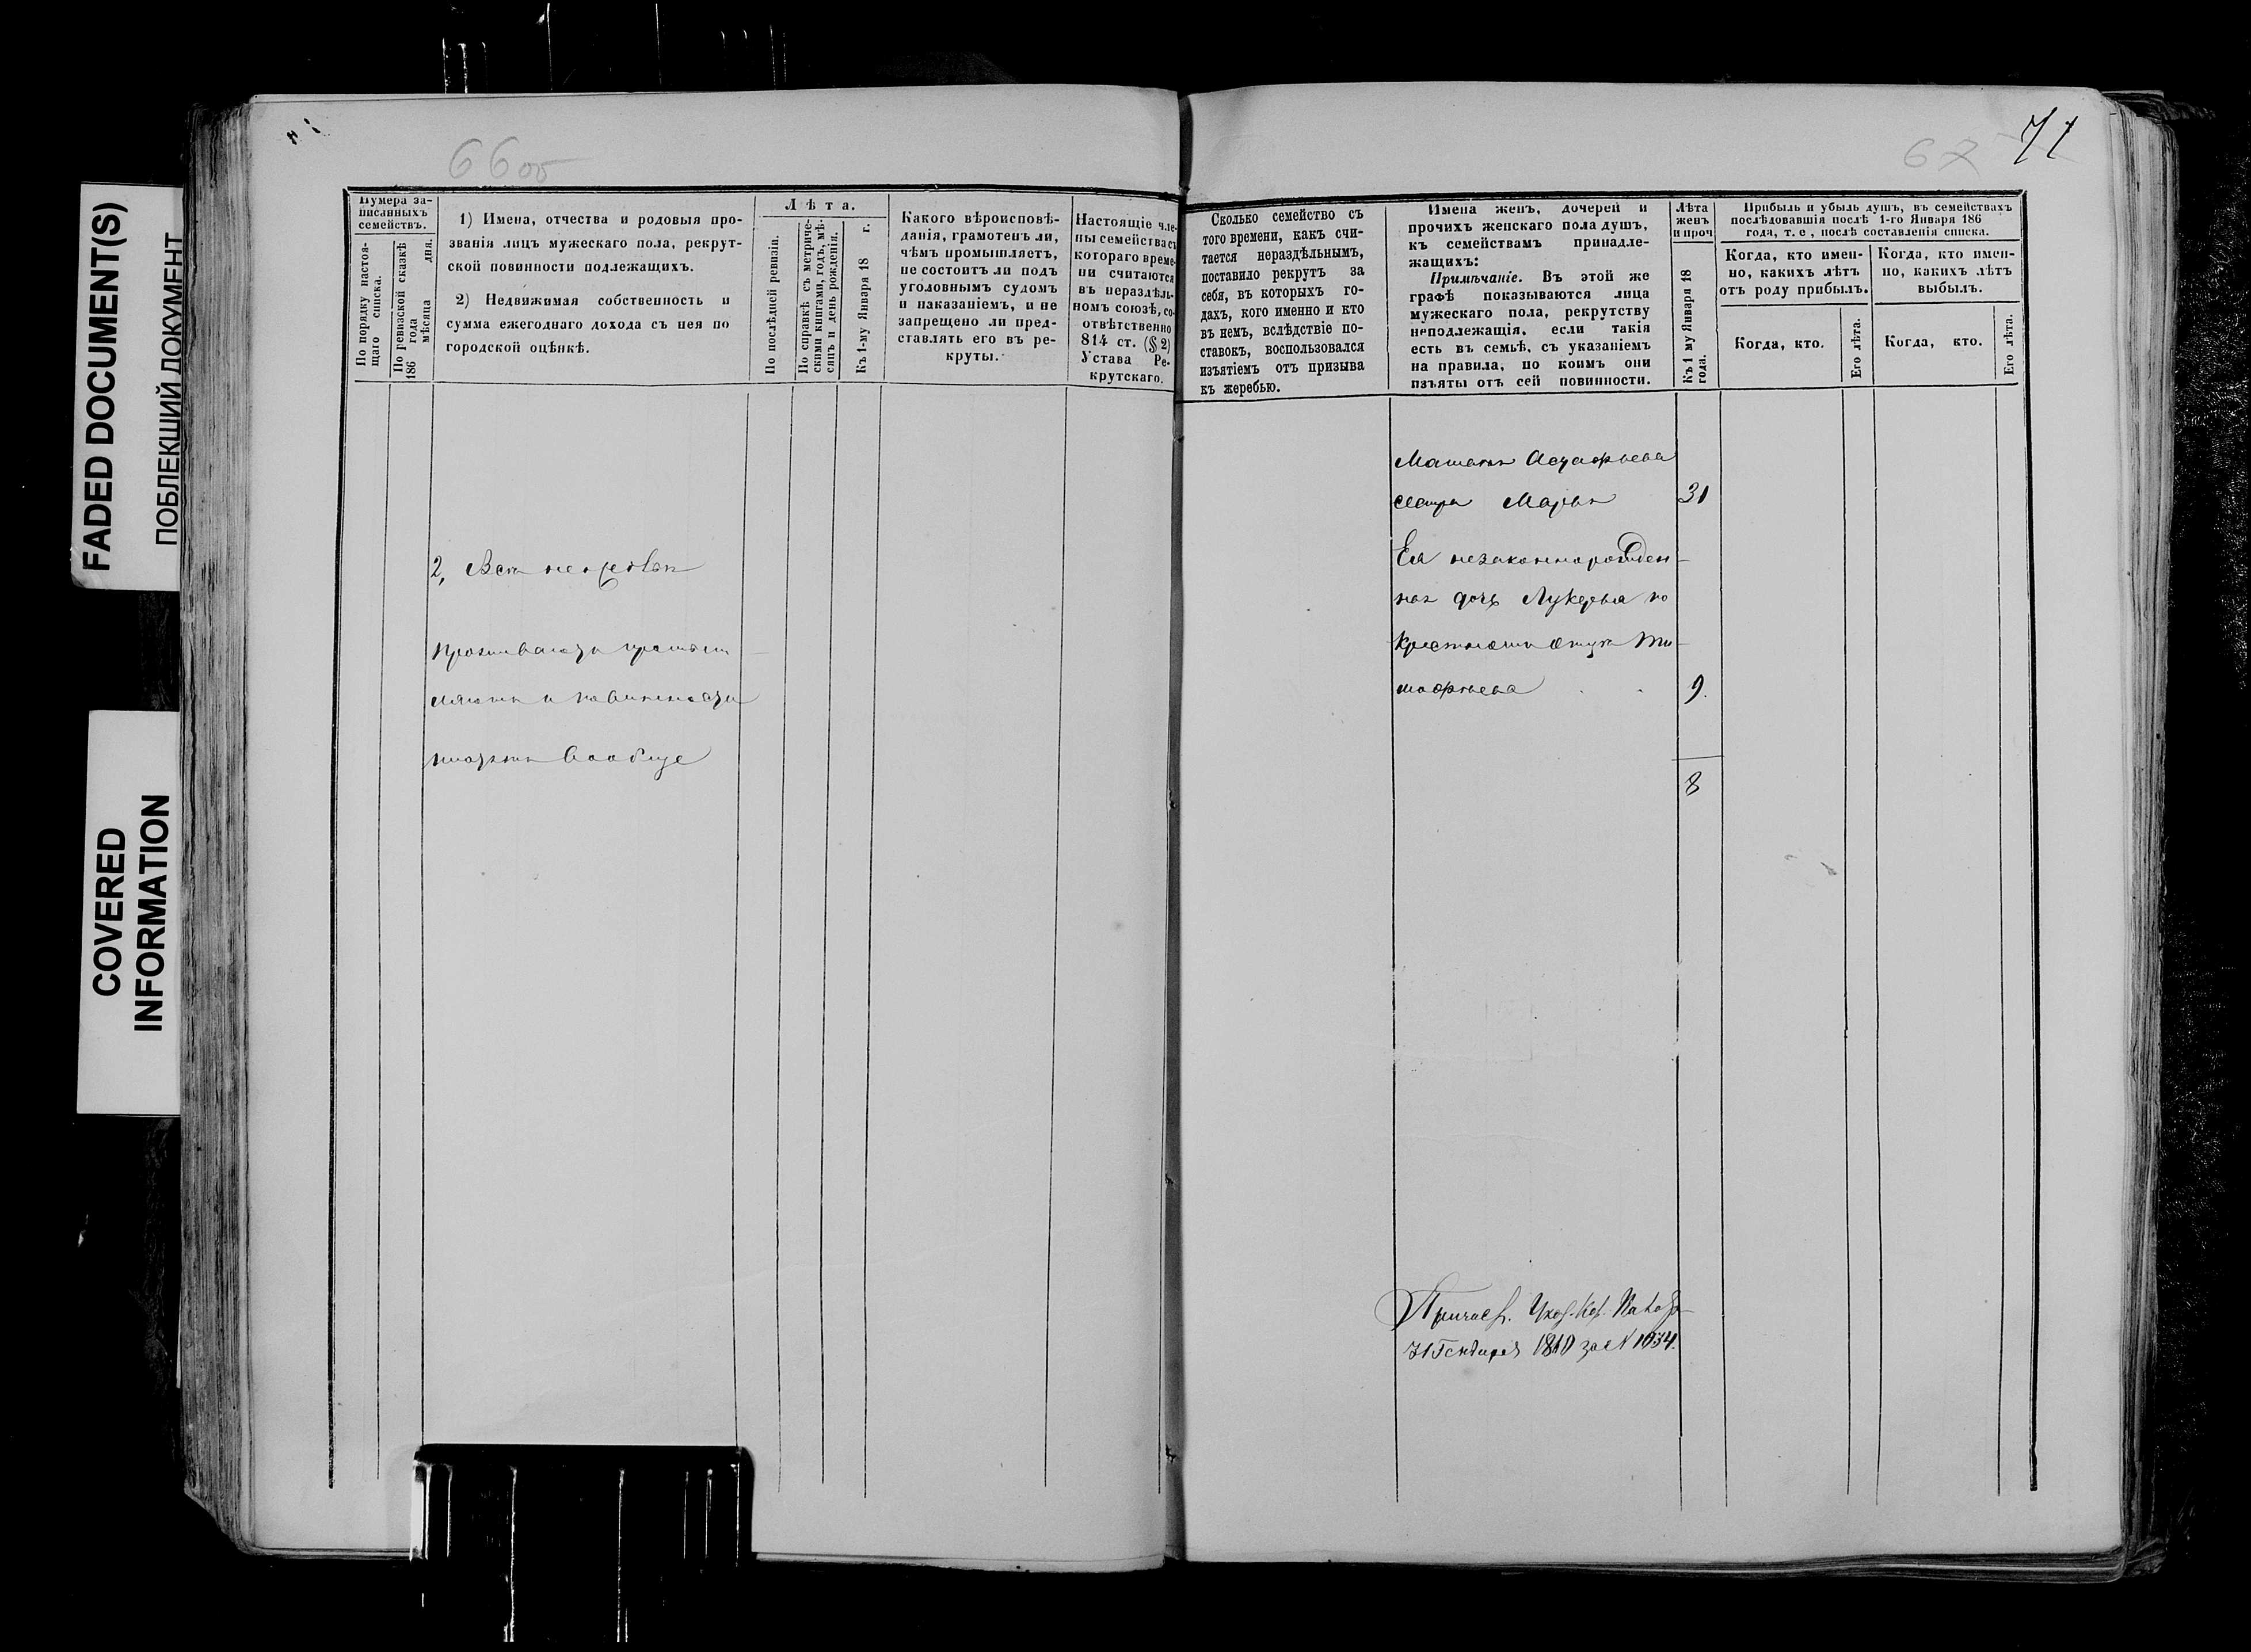 FADED DOCUMENT(S)
ПОБЛЕКШИЙ ДОКУМЕНТ
COVERED
INFORMATION
66об
Нумера за-
писанныхъ
семействъ.
По порядку настоя-
щаго списка.
По ревизской сказкѣ
186 года
мѣсяца дня.
1) Имена, отчества и родовыя про-
званія лицъ мужескаго пола, рекрут-
ской повинности подлежащихъ.
2) Недвижимая собственность и
сумма ежегоднаго дохода съ нея по
городской оцѣнкѣ.
Лѣта.
По послѣдней ревизіи.
По справкѣ съ метриче-
скими книгами, годъ, мѣ-
сяцъ и день рожденія.
Къ 1-му Января 18 г.
Какого вѣроисповѣ-
данія, грамотенъ ли,
чѣмъ промышляетъ,
не состоитъ ли подъ
уголовнымъ судомъ
и наказаніемъ, и не
запрещено ли пред-
ставлять его въ ре-
круты.
Настоящіе чле-
ны семейства съ
котораго време-
ни считаются
въ нераздѣль-
номъ союзѣ, со-
отвѣтственно
814 ст. (§ 2)
Устава Ре-
крутскаго.
2,
проживаютъ
вообще
67
71
Сколько семейство съ
того времени, какъ счи-
тается нераздѣльнымъ,
поставило рекрутъ за
себя, въ которыхъ го-
дахъ, кого именно и кто
въ немъ, вслѣдствіе по-
ставокъ, воспользовался
изъятіемъ отъ призыва
къ жеребью.
Имена женъ, дочерей и
прочихъ женскаго пола душъ,
къ семействамъ принадле-
жащихъ:
Примѣчаніе. Въ этой же
графѣ показываются лица
мужескаго пола, рекрутству
неподлежащія, если такія
есть въ семьѣ, съ указаніемъ
на правила, по коимъ они
изъяты отъ сей повинности.
Лѣта
женъ
и проч
Къ 1 му Января 18
года.
Прибыль и убыль душъ, въ семействахъ
послѣдовавшія послѣ 1-го Января 186
года, т. е., послѣ составленія списка.
Когда, кто имен-
но, какихъ лѣтъ
отъ роду прибылъ.
Когда, кто имен-
но, какихъ лѣтъ
выбылъ.
Когда, кто.
Его лѣта.
Когда, кто.
Его лѣта.
Астафьева
сестра Марья 31
Ея незаконнорожден-
ная дочь Лукерья по
Ти-
мофѣева 9.
8